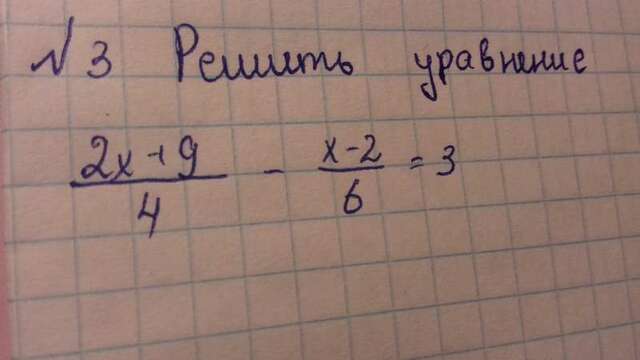 №3 Решить уравнение
2x+9/4 - x-2/6 = 3